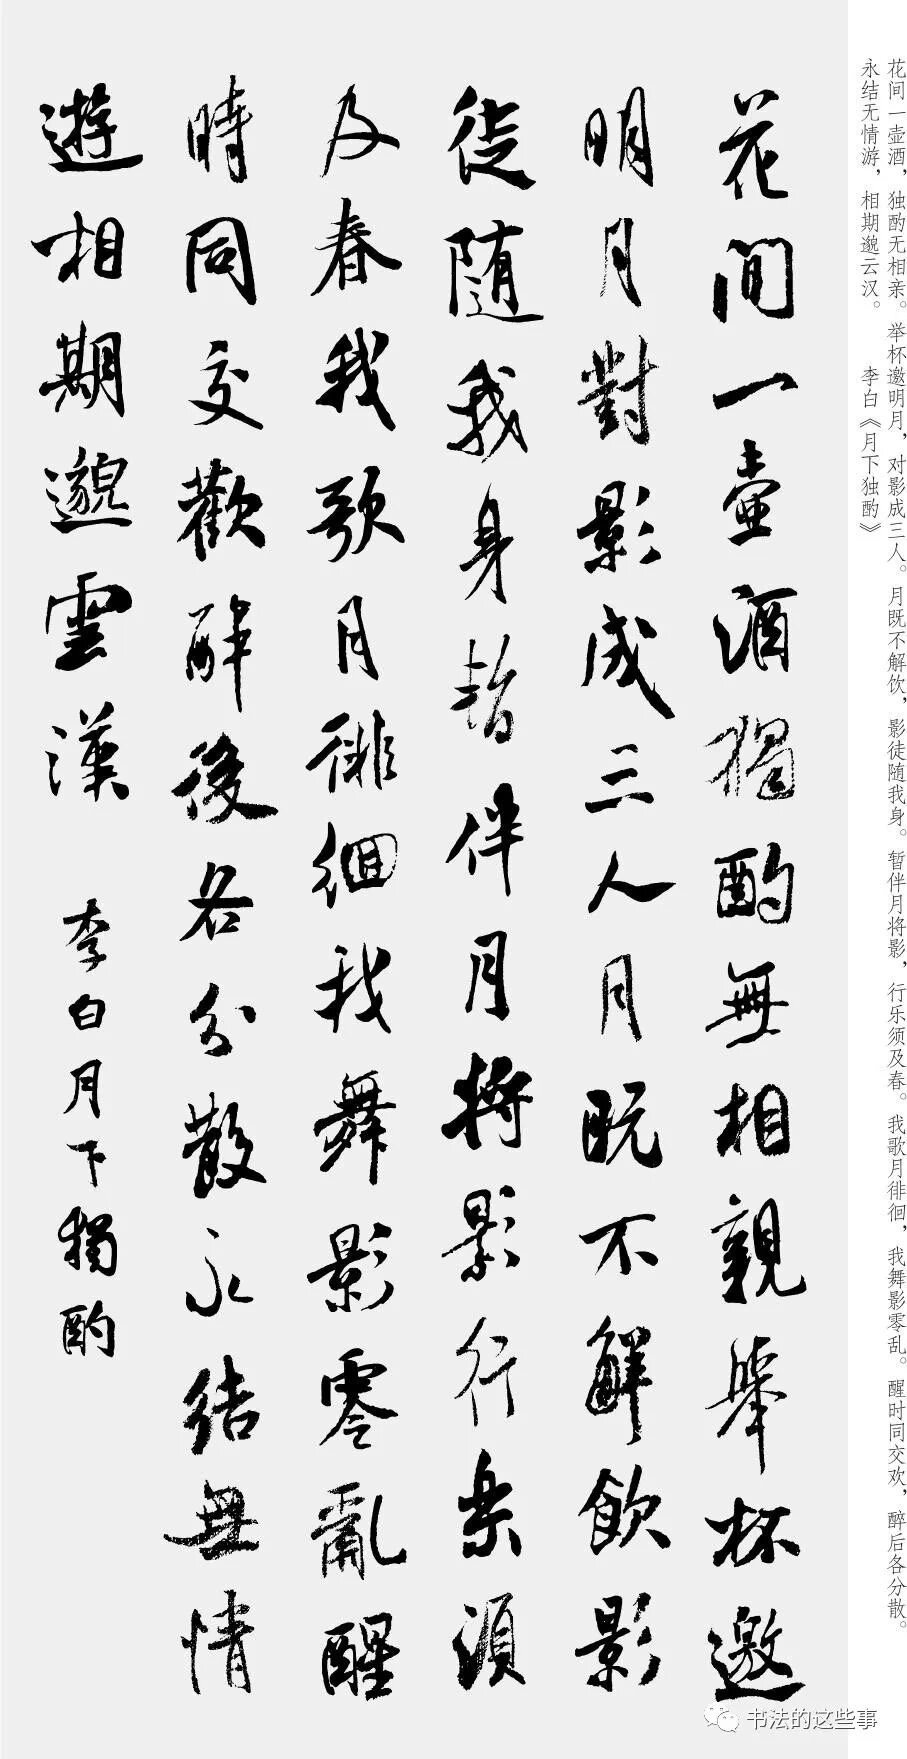 花间一壶酒，独酌无相亲。举杯邀明月，对影成三人。月既不解饮，影徒随我身。暂伴月将影，行乐须及春。我歌月徘徊，我舞影零乱。醒时同交欢，醉后各分散。
永结无情游，相期邈云汉。 李白《月下独酌》
花間一壺酒獨酌無相親舉杯邀
明月對影成三人月既不解飲影
徒随我身暫伴月將影行樂須
及春我歌月徘徊我舞影零亂醒
時同交歡醉後各分散永結無情
遊相期邈雲漢 李白月下獨酌
书法的这些事